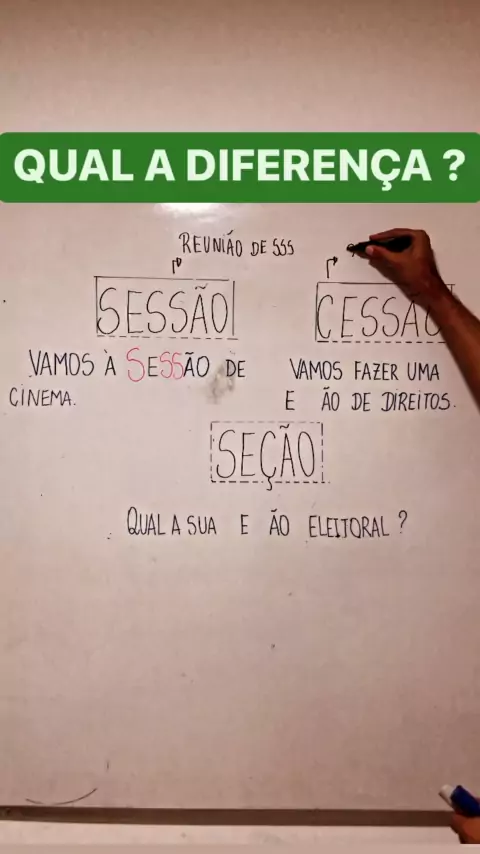 QUAL A DIFERENÇA ?
REUNIÃO DE SSS
SESSÃO
CESSÃO
VAMOS À SESSÃO DE
CINEMA.
VAMOS FAZER UMA
E ÃO DE DIREITOS.
SEÇÃO
QUAL A SUA E ÃO ELEITORAL ?